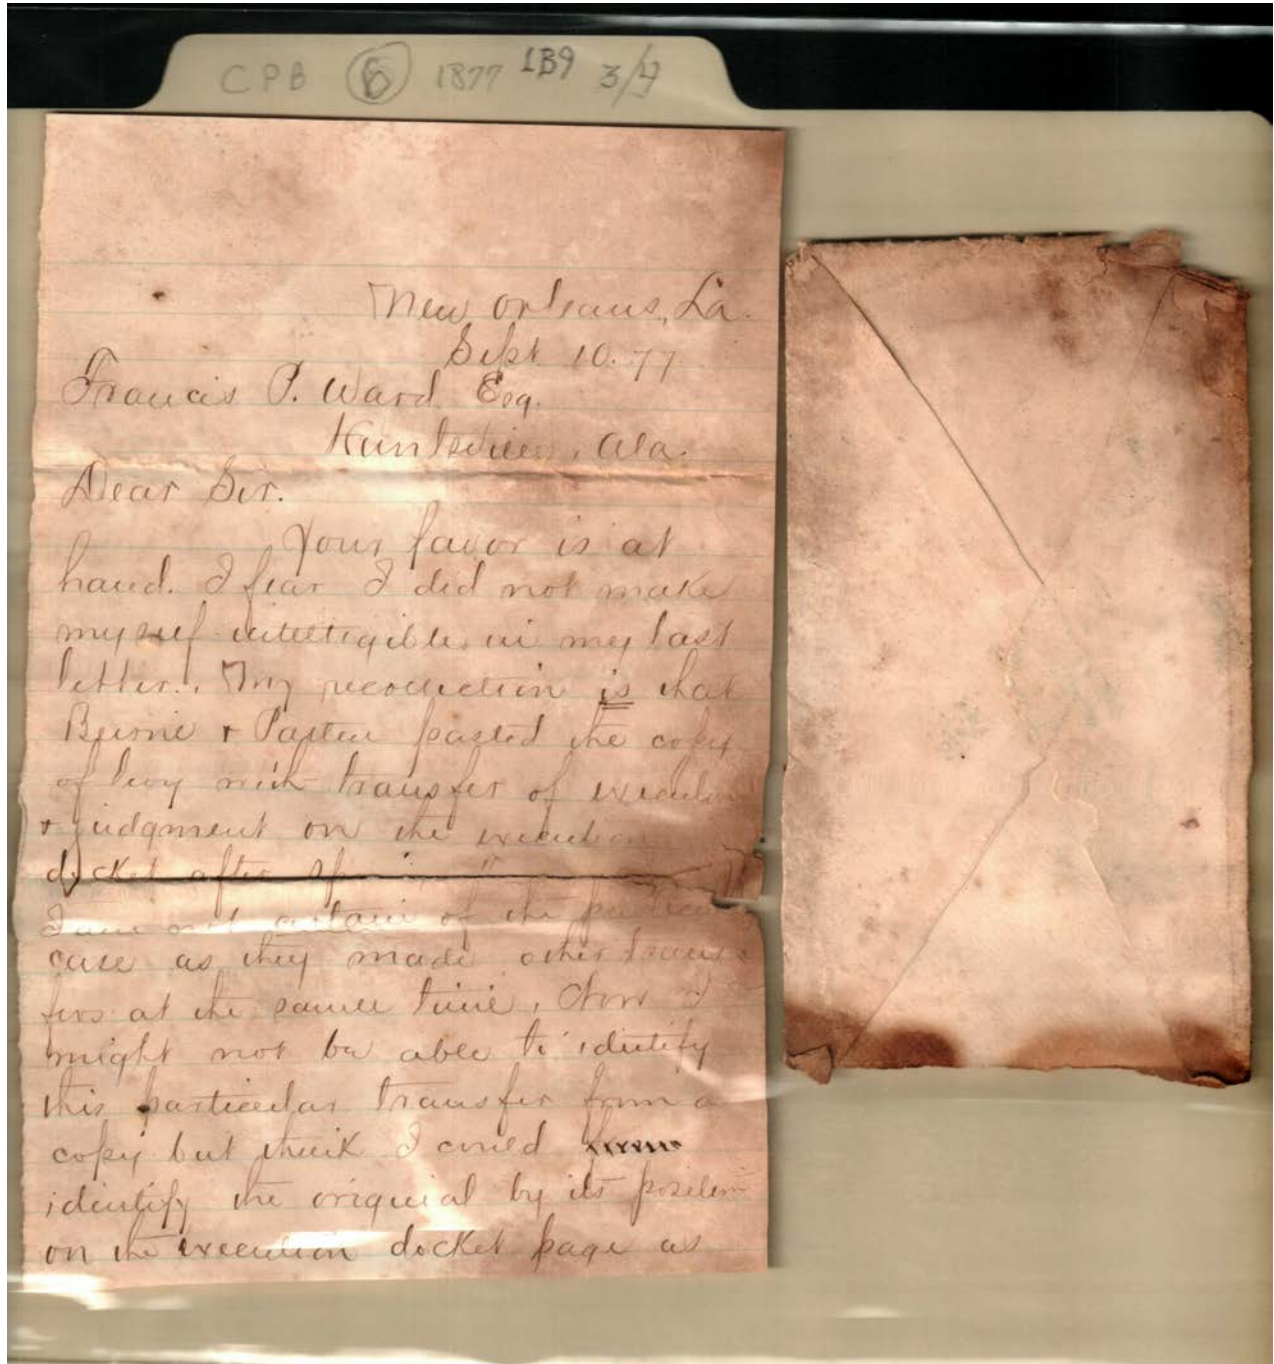 CPB 6 1877 1B9 3/4
New Orleans, La.
Sept 10. 77
Francis P. Ward Esq.
Huntsville, Ala.
Dear Sir.
Your favor is at
hand. I fear I did not make
myself intelligible in my last
letter. My recollection is that
Beirne + Patton pasted the copy
of levy with transfer of execution
+ judgment on the execution
docket after
I am not certain of the particular
case as they made other trans
fers at the same time. Now I
might not be able to identify
this particular transfer from a
copy but think I could
identify the original by its position
on the execution docket page as